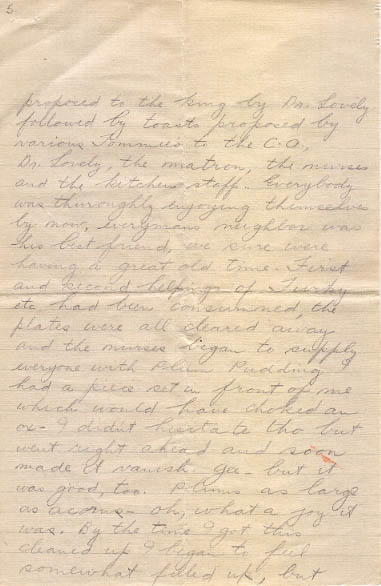 5
proposed to the king by Dr. Lovely
followed by toasts proposed by
various Tommies to the C.O.,
Dr. Lovely, the matron, the nurses
and the kitchen staff. Everybody
was thuroughly enjoying themselves
by now, everymans neighbor was
his best friend, we sure were
having a great old time. First
and second helpings of Turkey
etc had been consummed, the
plates were all cleared away
and the nurses began to supply
everyone with Plum Pudding I
had a piece set in front of me
which would have choked an
ox- I didnt hesitate tho but
went right ahead and soon
made it vanish. Gee- but it
was good, too. Plums as large
as acorns- oh, what a joy it
was. By the time I got this
cleaned up I began to feel
somewhat filled up, but